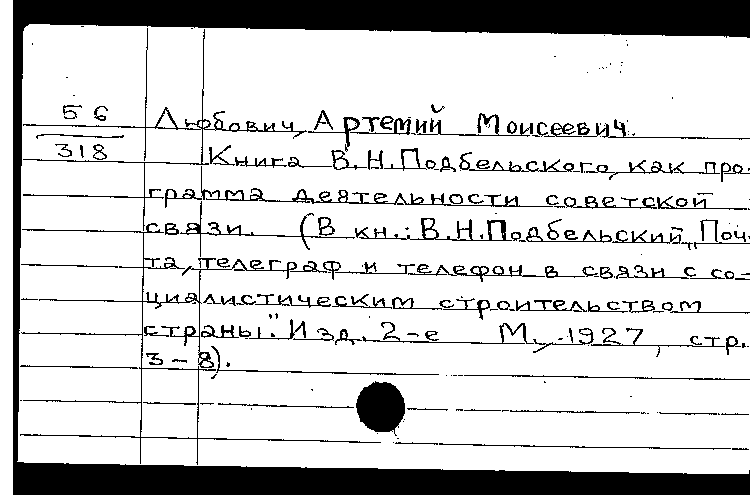 56
318
Любович, Артемий Моисеевич.
Книга В.Н.Подбельского, как про-
грамма деятельности советской
связи. (В кн.: В.Н.Подбельский „Поч-
та, телеграф и телефон в связи с со-
циалистическим строительством
страны". Изд. 2-е М., 1927, стр.
3-8).